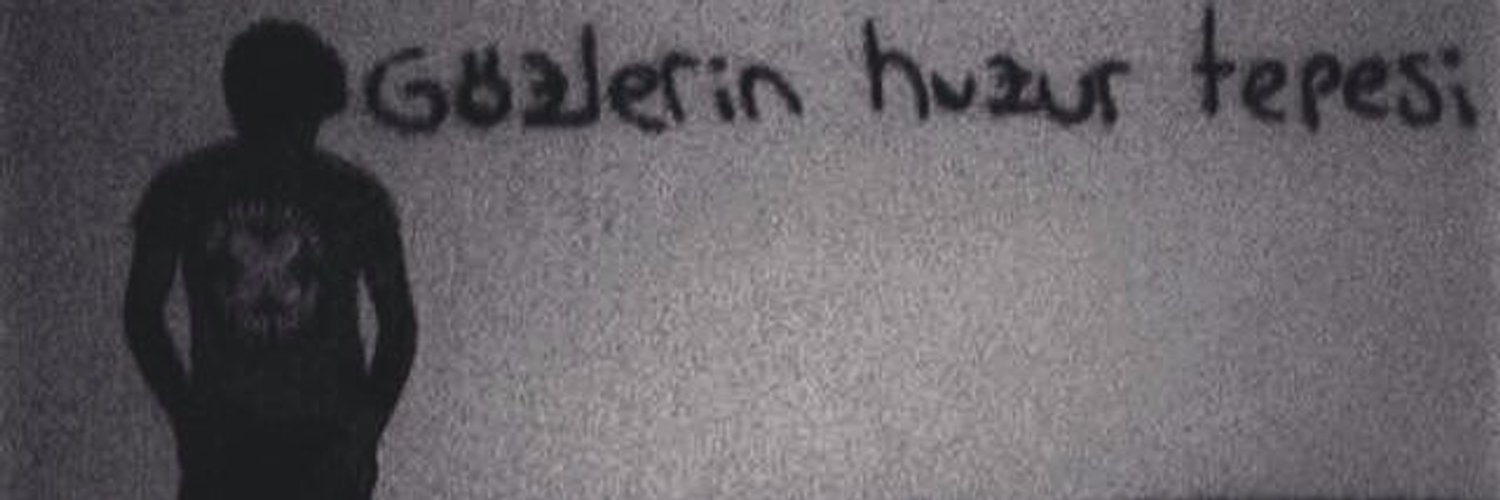 Gözlerin huzur tepesi